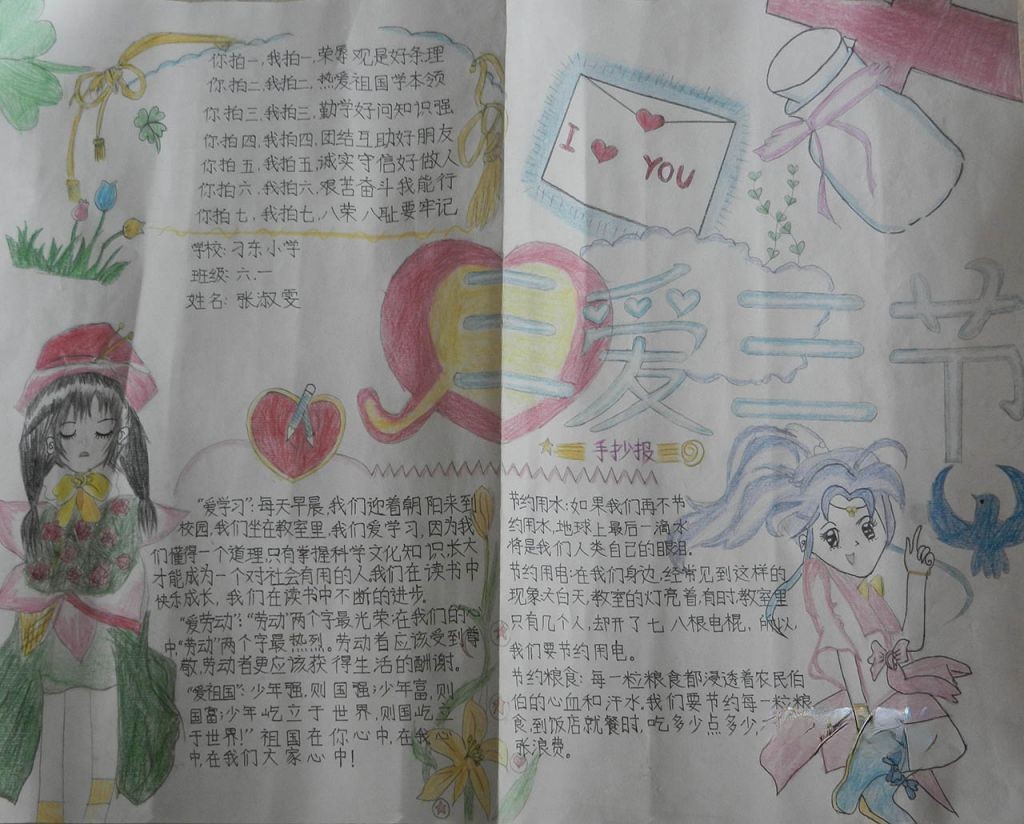 你拍一,我拍一,荣辱观是好条理
你拍二,我拍二,热爱祖国学本领
你拍三,我拍三,勤学好问知识强
你拍四,我拍四,团结互助好朋友
你拍五,我拍五,诚实守信好做人
你拍六,我拍六,艰苦奋斗我能行
你拍七,我拍七,八荣八耻要牢记
学校:刁东小学
班级:六.一
姓名:张淑雯
I YOU
三爱三节
手抄报
“爱学习”:每天早晨,我们迎着朝阳来到
校园,我们坐在教室里,我们爱学习,因为我
们懂得一个道理,只有掌握科学文化知识,长大
才能成为一个对社会有用的人,我们在读书中
快乐成长,我们在读书中不断的进步。
“爱劳动”:“劳动”两个字最光荣;在我们的心
中“劳动”两个字最热烈。劳动者应该受到尊
敬,劳动者更应该获得生活的酬谢。
“爱祖国”:少年强,则国强;少年富,则
国富;少年屹立于世界,则国屹立
于世界!”祖国在你心中,在我心
中,在我们大家心中!
节约用水:如果我们再不节
约用水,地球上最后一滴水
将是我们人类自己的眼泪。
节约用电:在我们身边,经常见到这样的
现象:大白天,教室的灯亮着,有时教室里
只有几个人,却开了七八根电棍,所以,
我们要节约用电。
节约粮食:每一粒粮食都浸透着农民伯
伯的心血和汗水,我们要节约每一粒粮
食,到饭店就餐时,吃多少点多少,
张浪费。